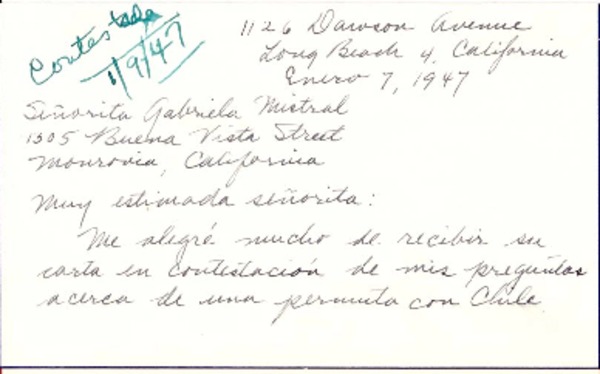 Contestada
1/9/47
1126 Dawson Avenue
Long Beach 4, California
Enero 7, 1947
Señorita Gabriela Mistral
1305 Buena Vista Street
Monrovia, California
Muy estimada señorita:
Me alegré mucho de recibir su
carta en contestación de mis preguntas
acerca de una permuta con Chile